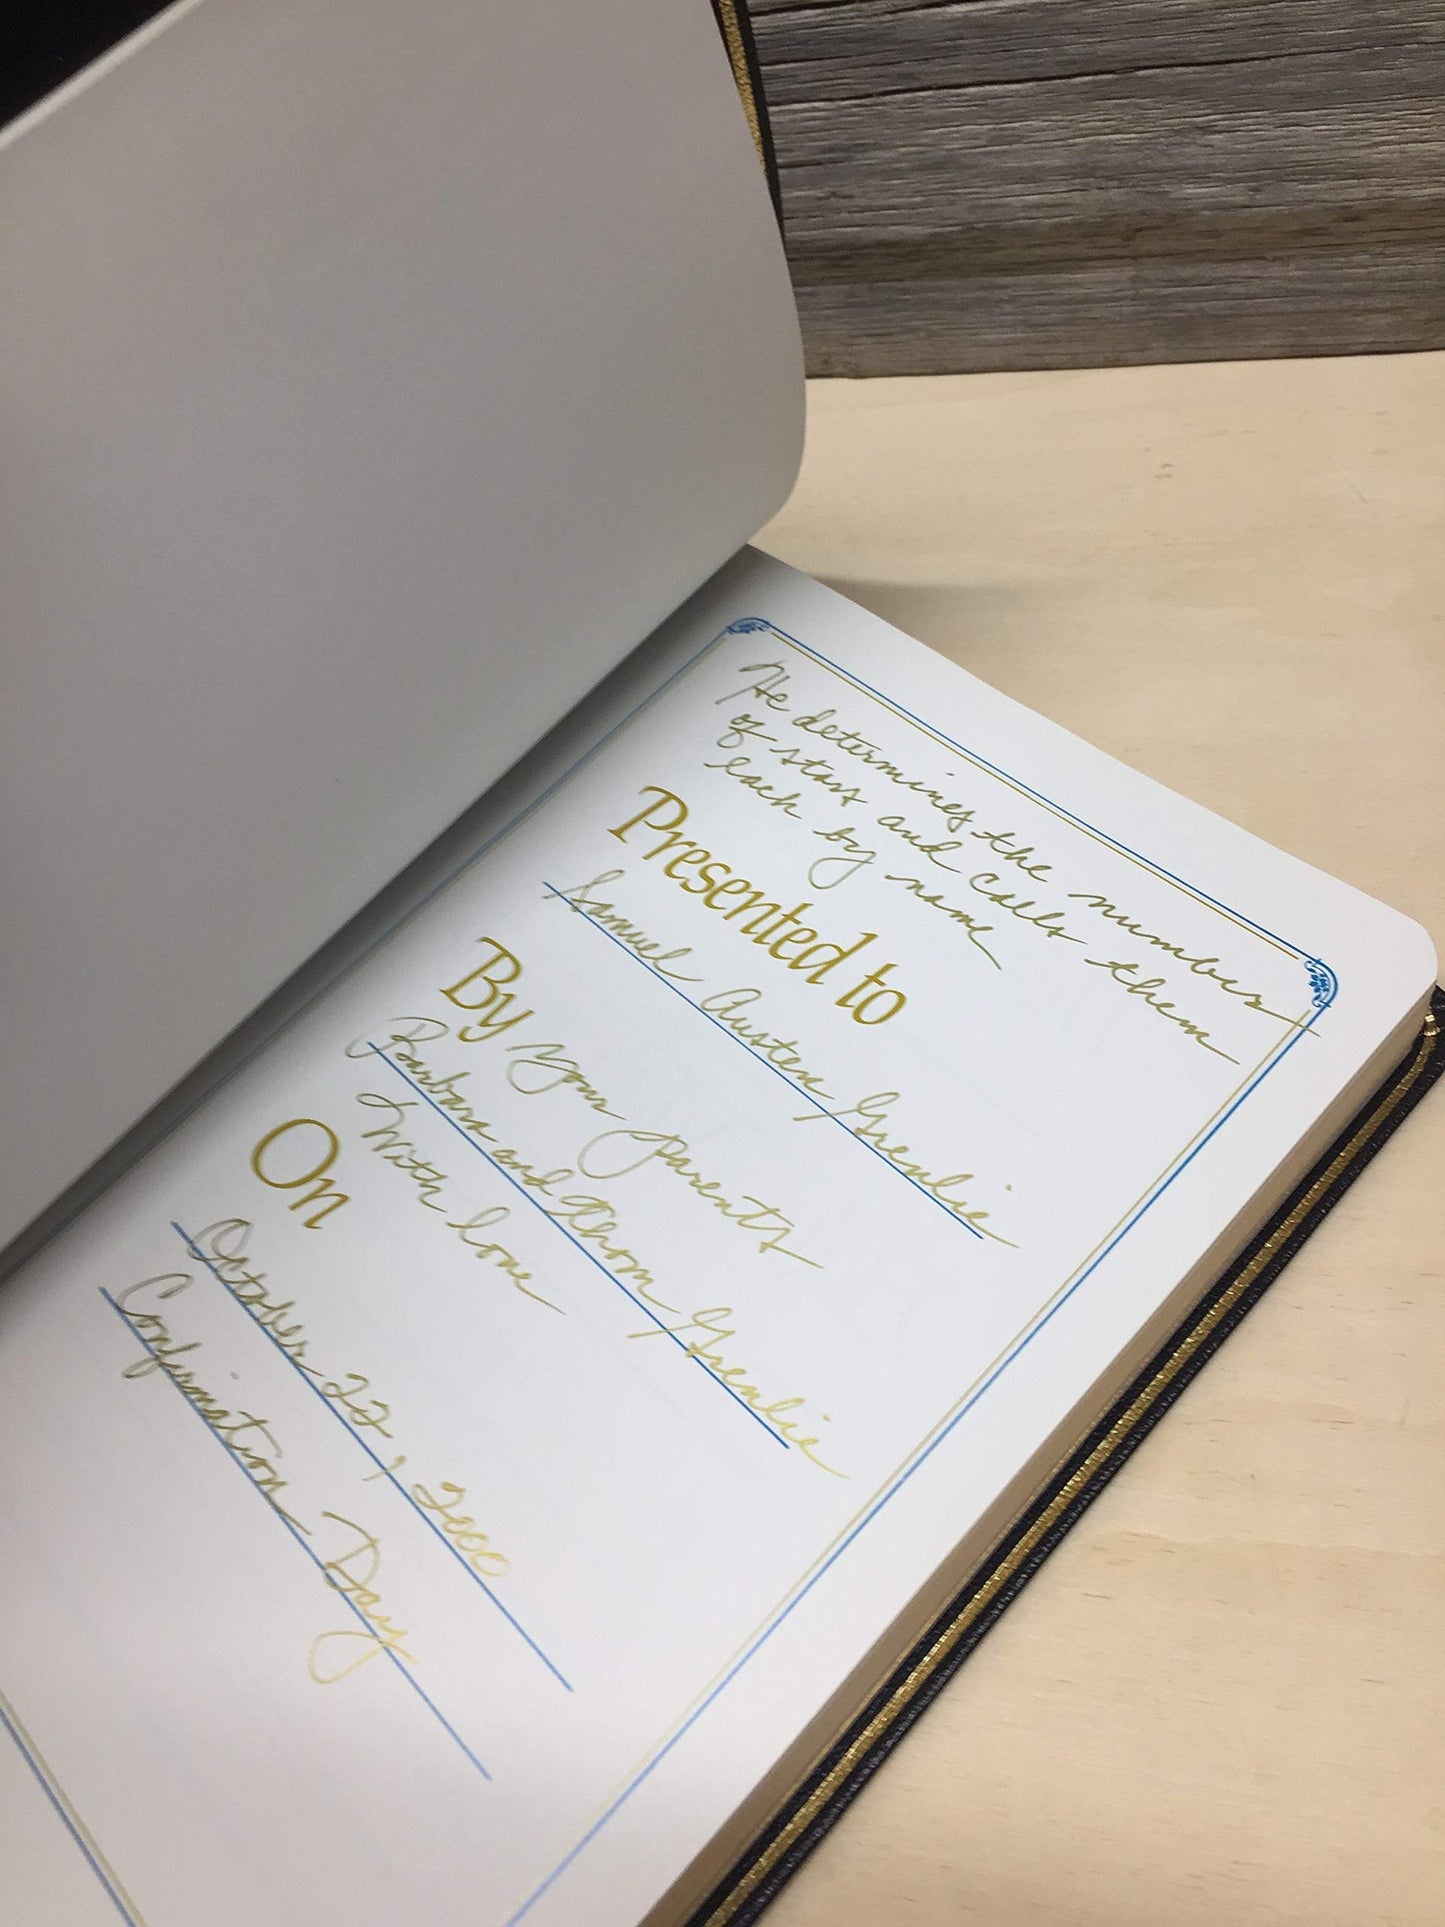 He determines the number
of stars and calls them
each by name
Presented to
Samuel Austen Grenlie
By your parents
Barbara and Thom Grenlie
With love
On
October 22, 2000
Confirmation Day